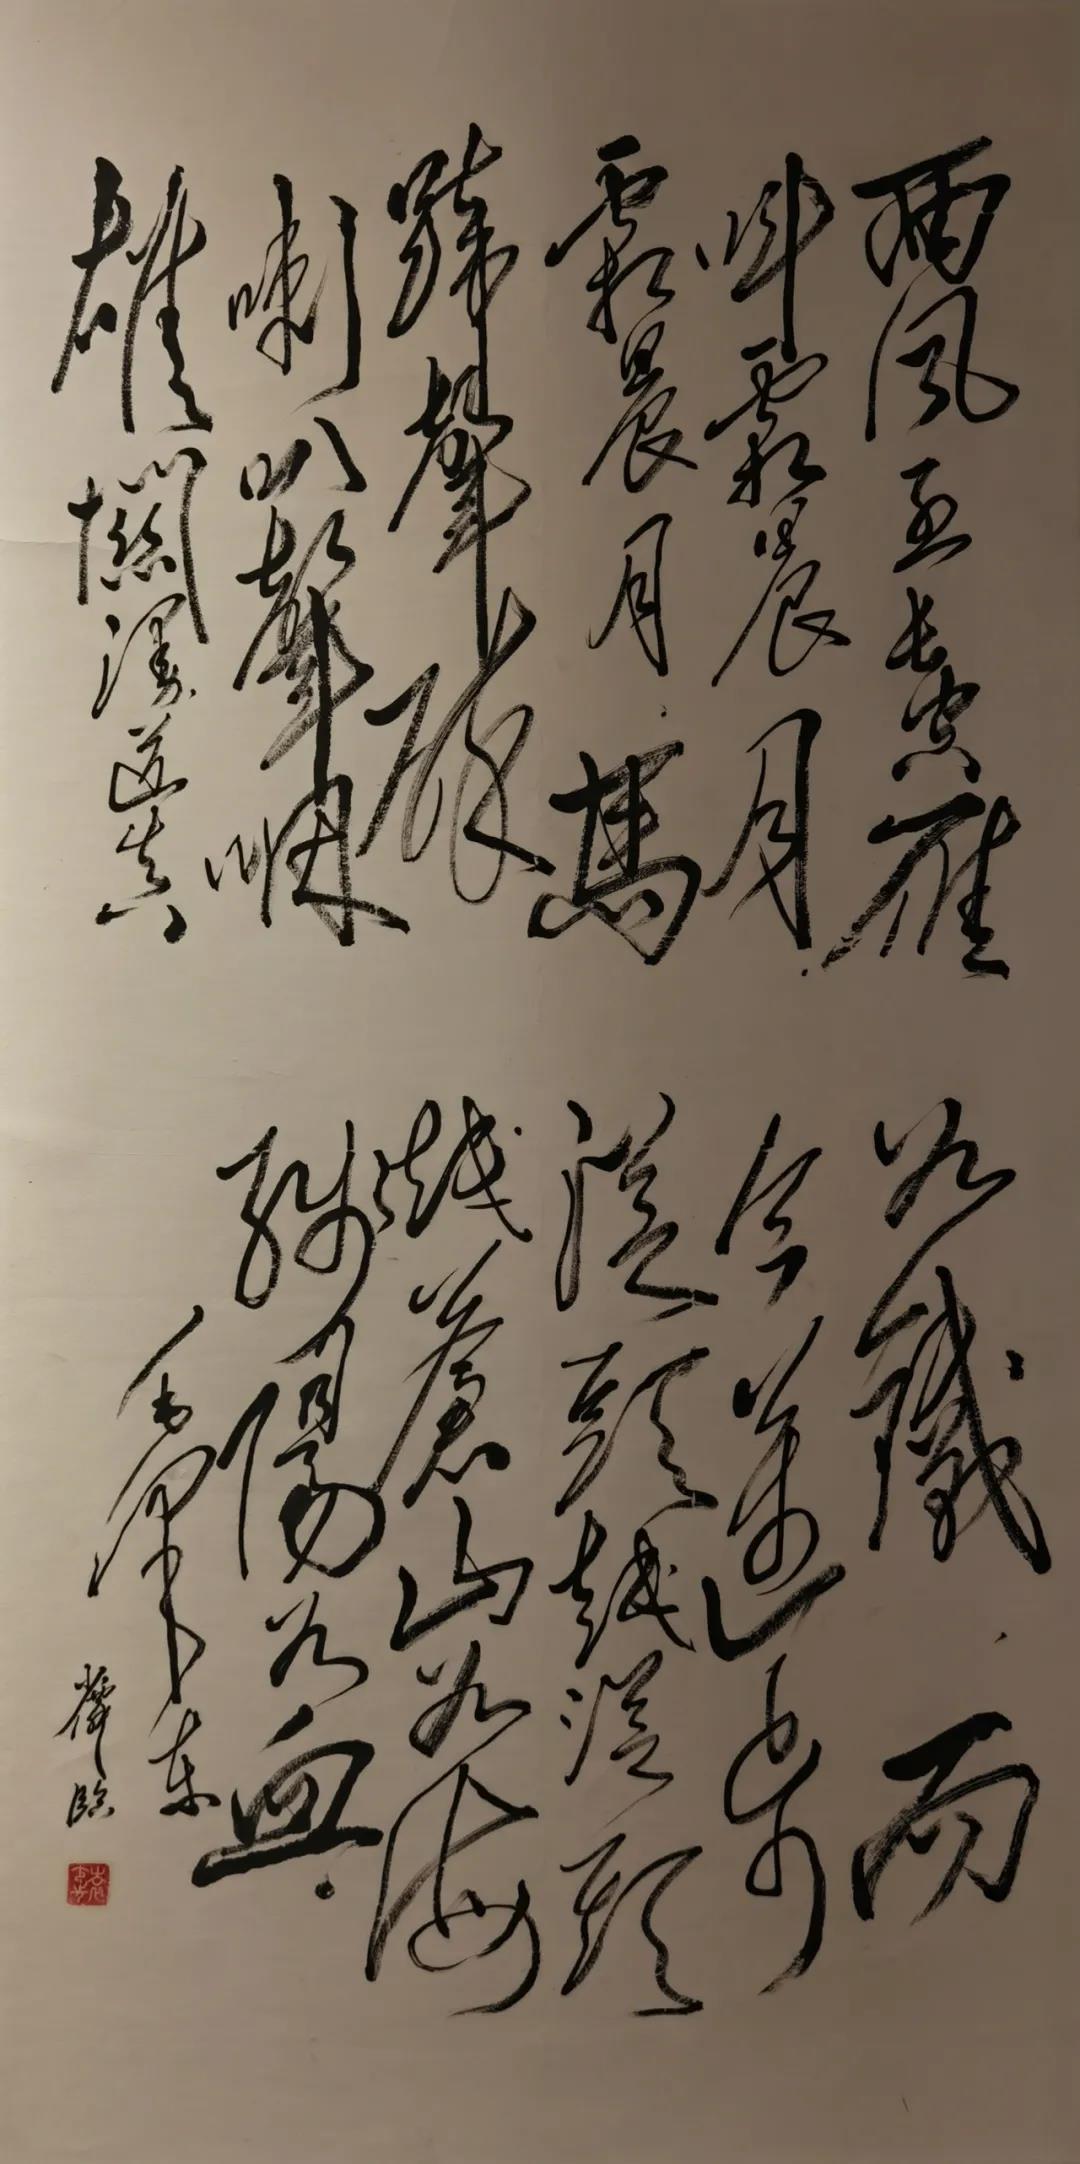 西風烈長空雁
叫霜晨月.
霜晨月.馬
蹄聲碎
喇叭聲咽
雄關漫道真
如鐵.而
今邁步
從頭越從頭
越蒼山如海
殘陽如血.
毛澤東
臨